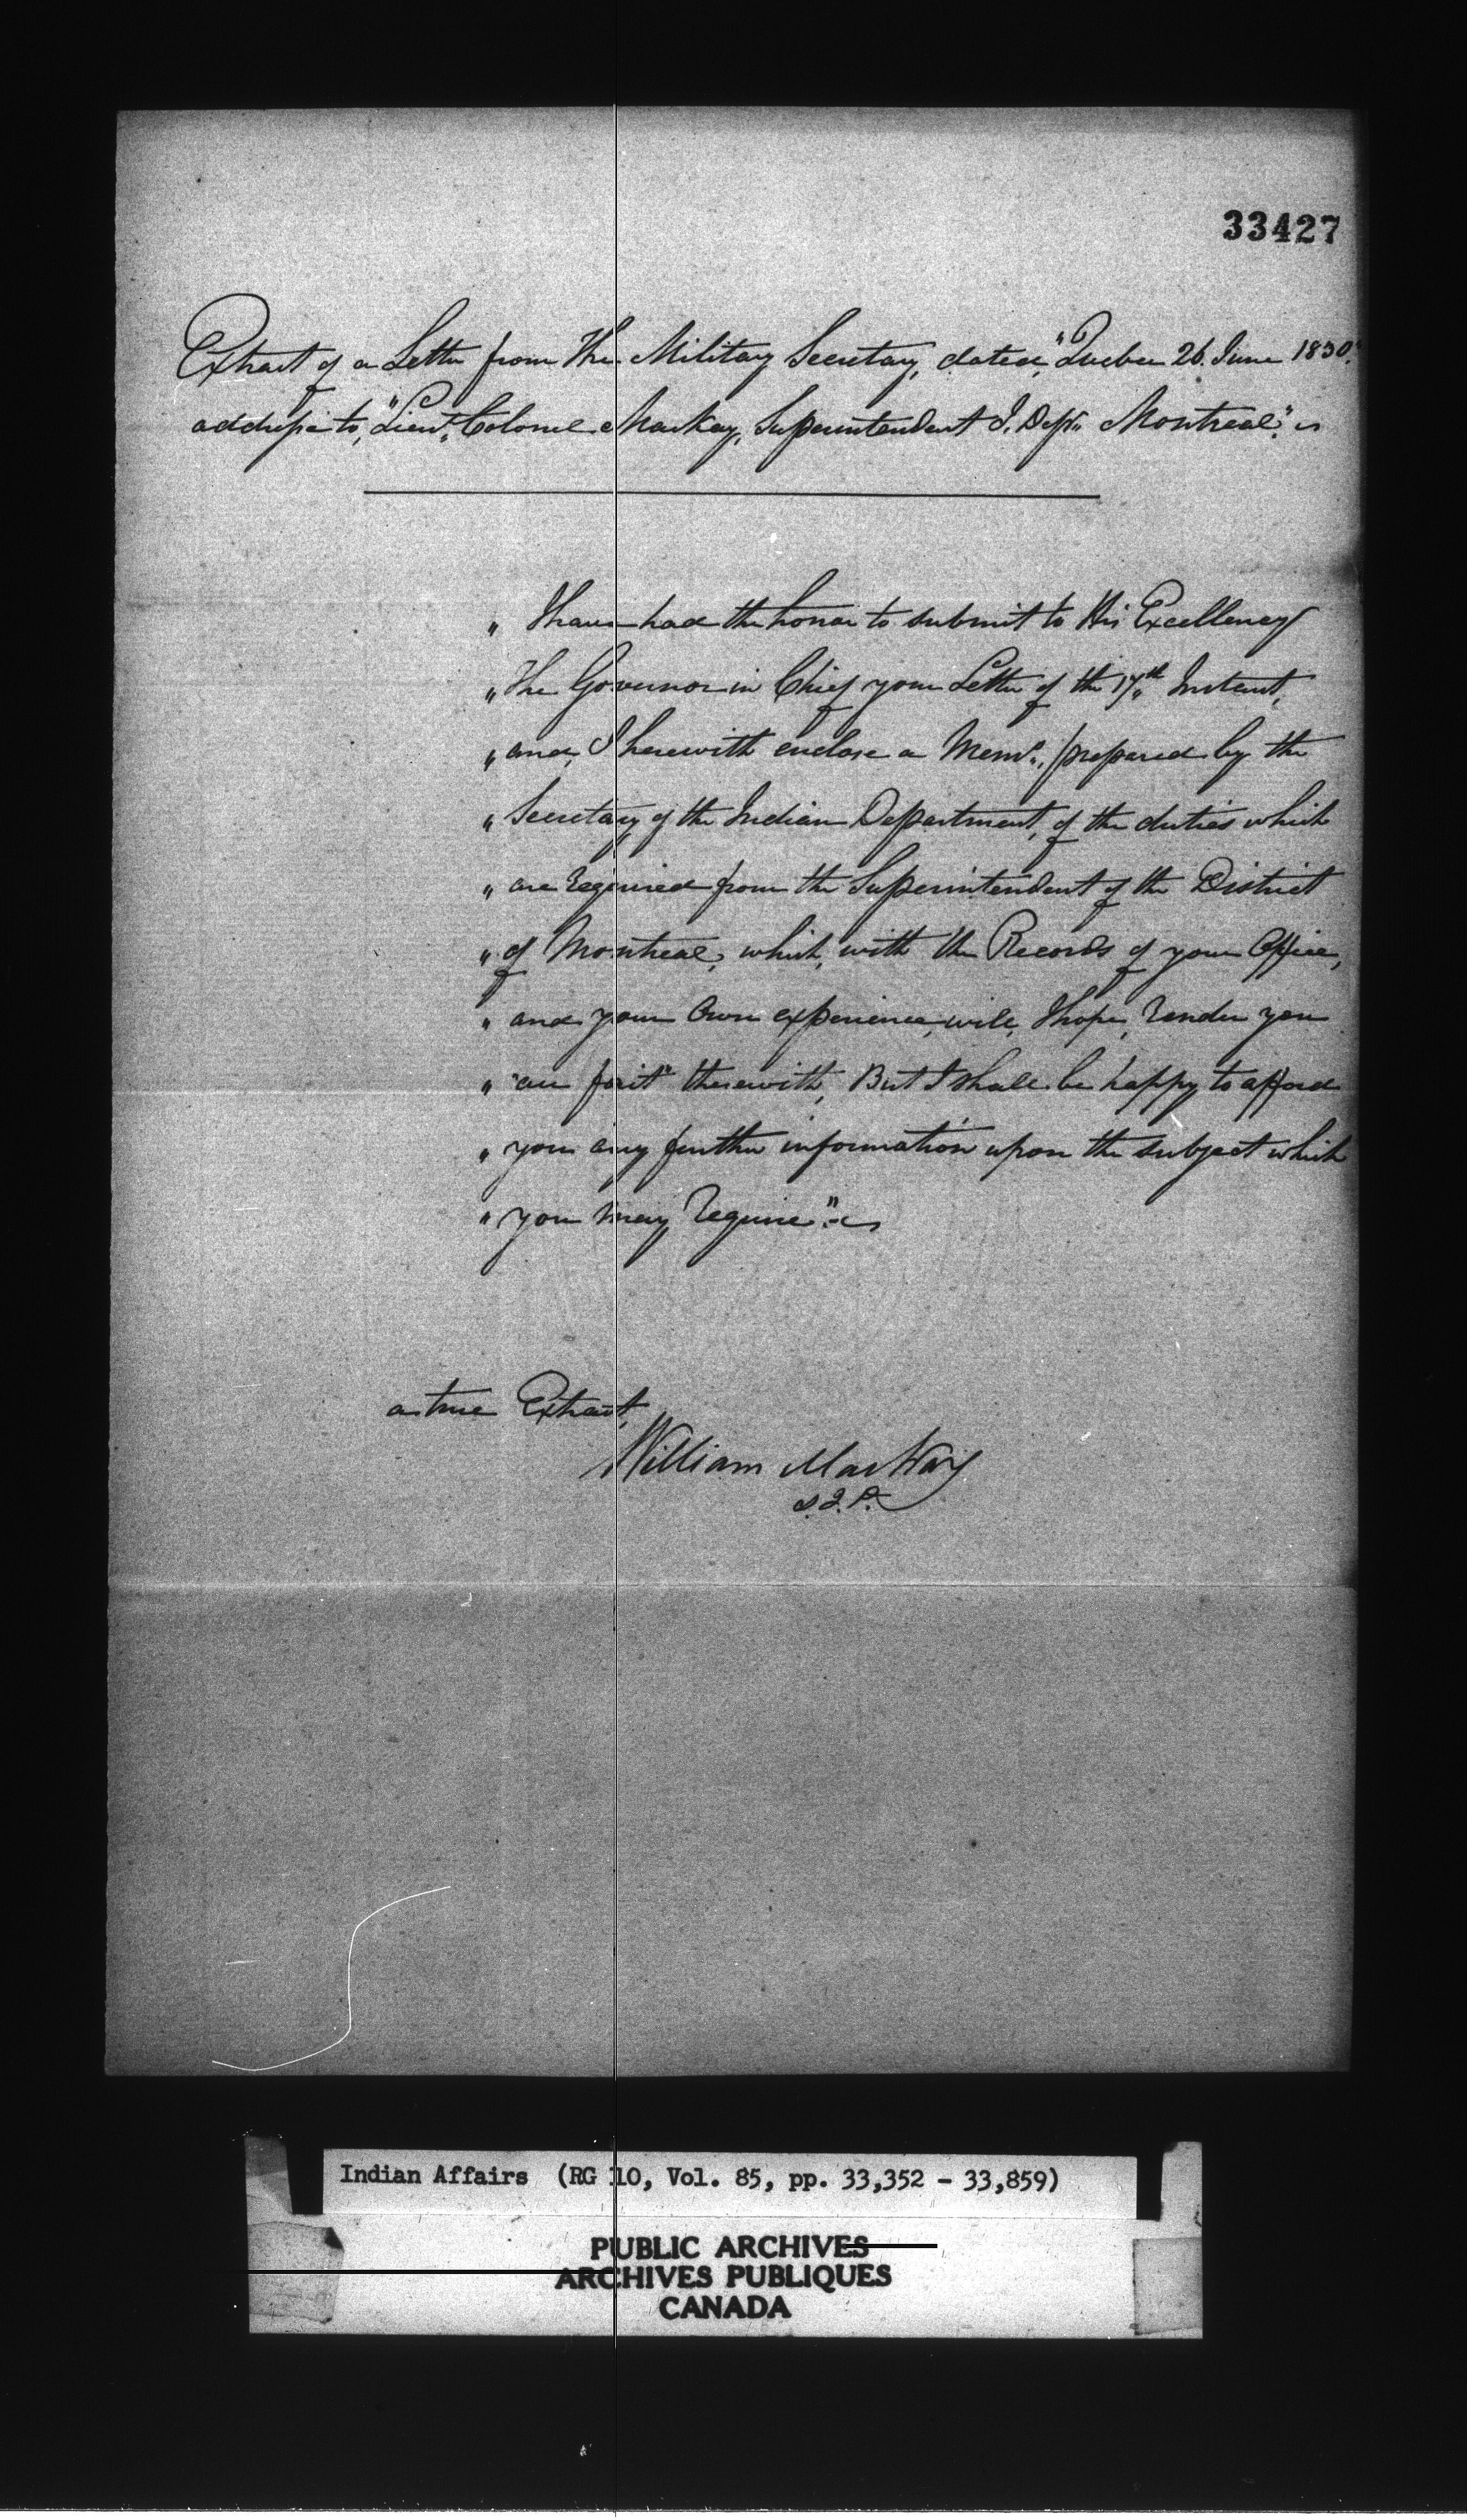 33427
Extract of a Letter from The Military Secretary, dated, "Quebec 26. June 1830."
addressed to, "Lieut. Colonel Mackay, Superintendent I. Dept. Montreal."
" I have had the honor to submit to His Excellency
" The Governor in Chief your Letter of the 17th Instant,
" and, I herewith enclose a Memo., prepared by the
" Secretary of the Indian Department, of the duties which
" are required from the Superintendent of the District
" of Montreal, which, with the Records of your Office,
" and your Own experience, will, I hope, render you
" "au fait" therewith, But I shall be happy to afford
" you any further information upon the subject which
" you may require."
a true Extract,
William MacKay
Indian Affairs (RG 10, Vol. 85, pp. 33,352 - 33,859)
PUBLIC ARCHIVES
ARCHIVES PUBLIQUES
CANADA